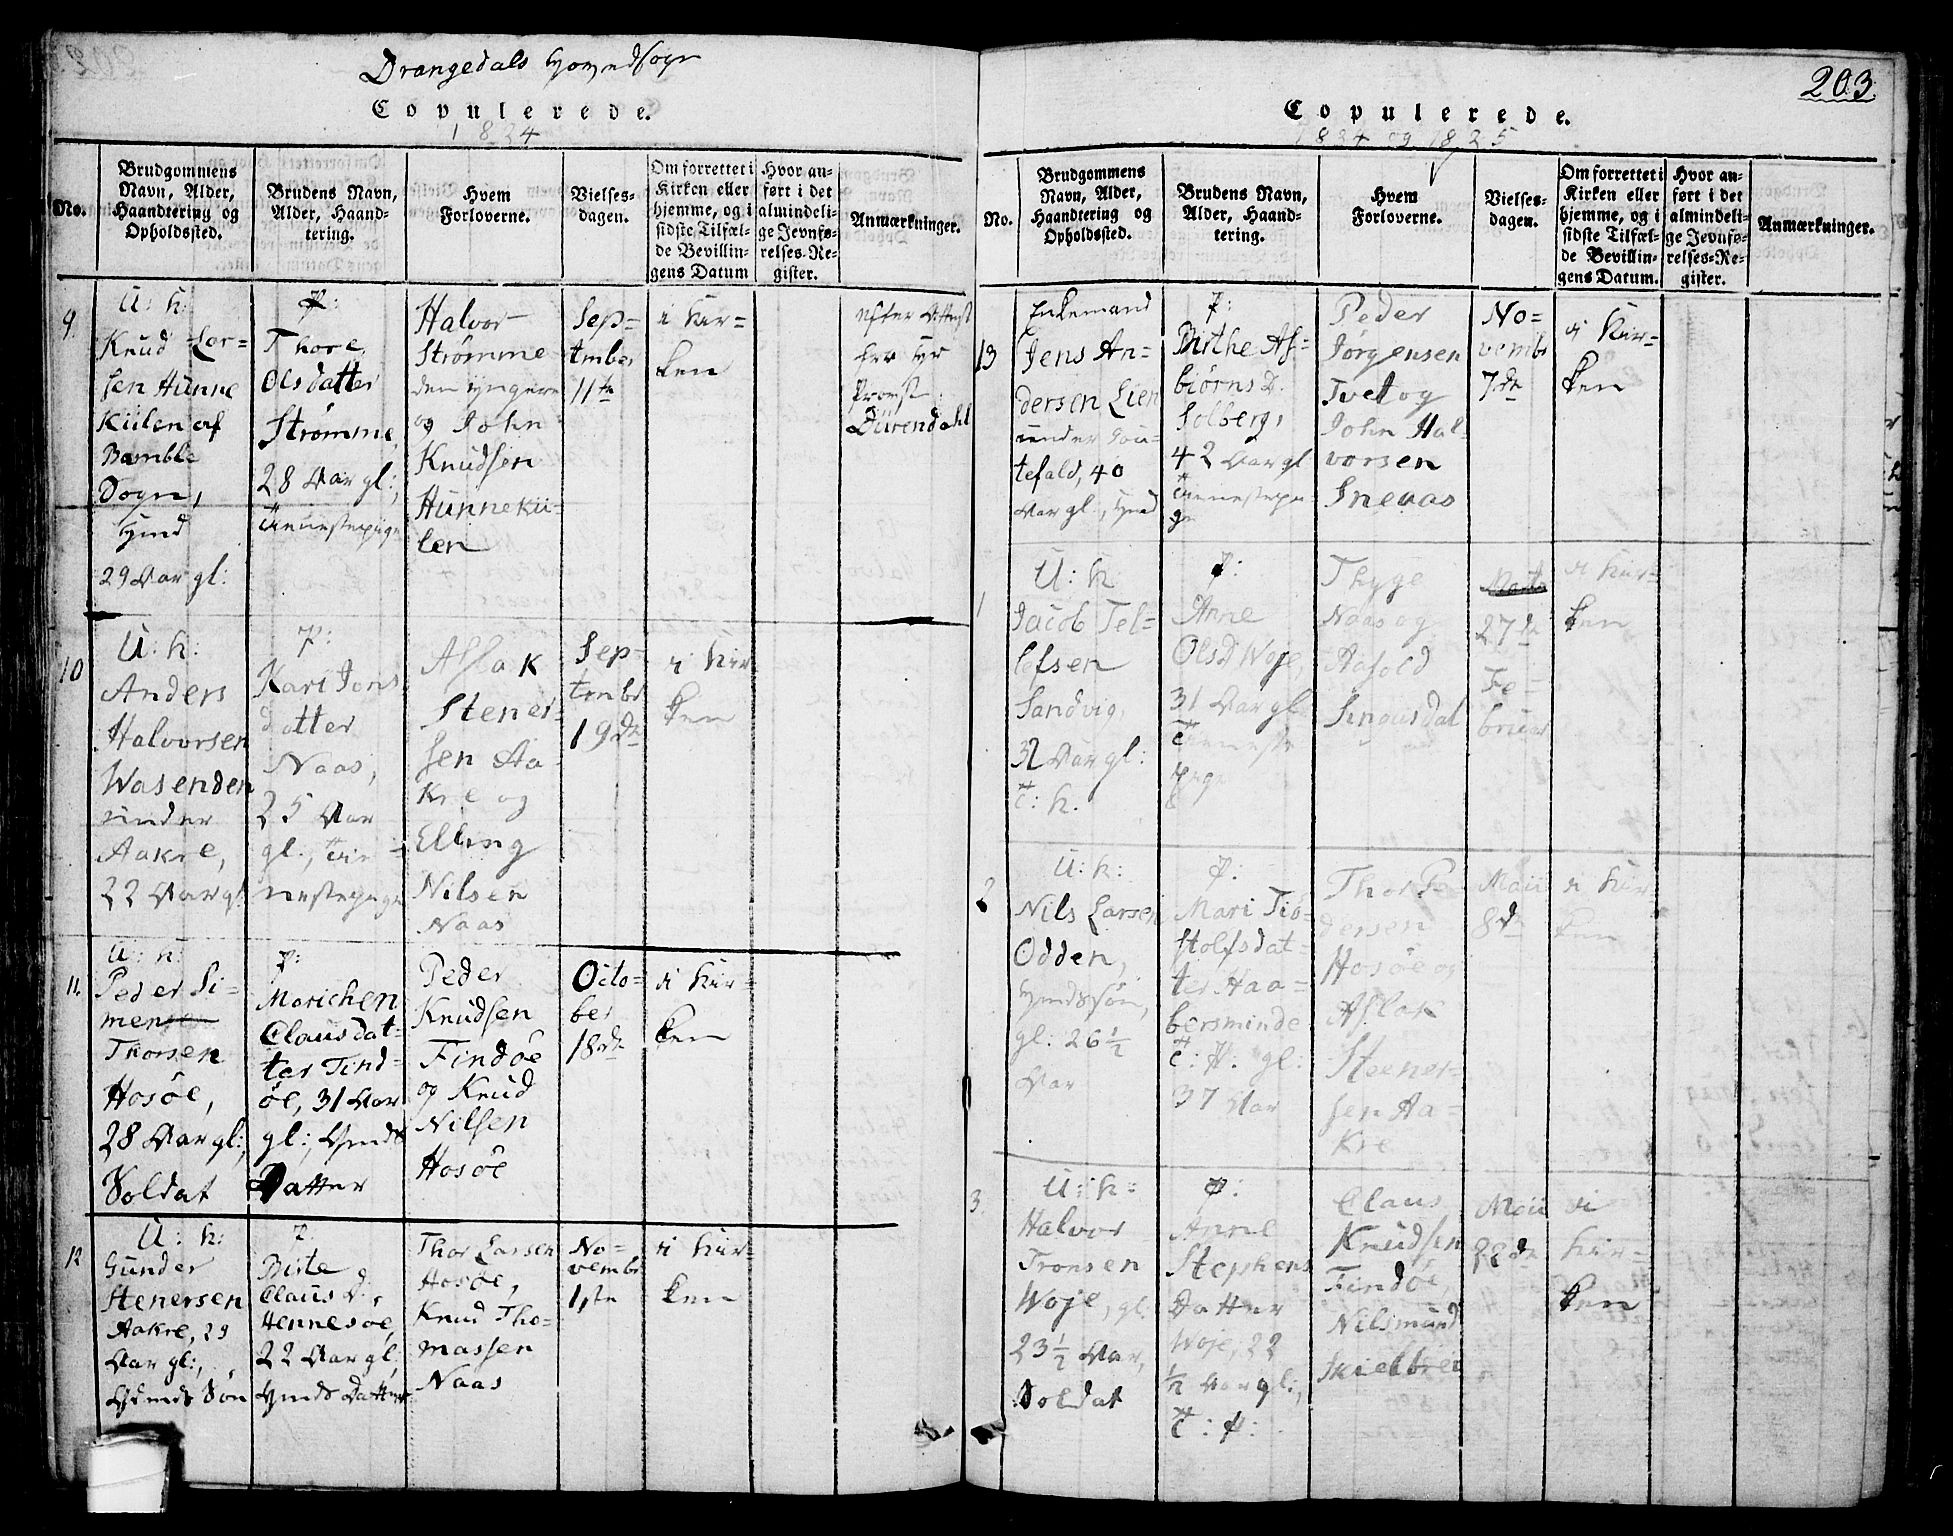 Drangedals Hovedsogn
Copulerede.
1824
No.
Brudgommens
Navn, Alder,
Haandtering og
Opholdssted.
Brudens Navn,
Alder, Haand-
tering.
Hvem
Forloverne.
Vielses-
dagen.
Om forrettet i
Kirken eller
hjemme, og i
sidste Tilfæl-
de Bevillin-
gens Datum
Hvor an-
ført i det
almindeli-
ge Jevnfø-
relses-Re-
gister.
Anmærkninger.
9.
U: k:
Knud Lar-
sen Hunne
Kiilen af
Bamble
Sogn,
29 Aar gl:
P:
Thore
Olsdatter
Strømme,
28 Aar gl:,
Tienestepige
Halvor
Strømme
den yngere
og John
Knudsen
Hunneku-
len
Sep-
tmber
11te
i Kir-
ken
efter Attest
fra Hr
Provst
Dürendahl
10
U: k:
Anders
Halvorsen
Wasenden
under
Aakre,
22 Aar gl:
P:
Kari Jons
datter
Naas,
25 Aar
gl:, Tie-
nestepige
Aslak
Stener-
sen Aa-
kre og
Elling
Nilsen
Naas
Sep-
tmbr
19de
i Kir-
ken
11.
U: k:
Peder Si-
mense
Thorsen
Hosøe,
28 Aar gl:,
Soldat
P:
Marichen
Clausdat-
ter Tind-
øe, 31 Aar
gl:,
Datter
Peder
Knudsen
Findøe
og Knud
Nilsen
Hosøe
Octo-
ber
18de
i Kir-
ken
12
U: k:
Gunder
Stenersen
Aakre, 29
Aar gl:,
P:
Birte
Claus D.,
Hennesøe,
22 Aar gl:,
Thor Larsen
Hosøe,
Knud Tho-
massen
Naas
No-
vembr
1ste
i Kir-
ken
203.
Copulerede.
1824 og 1825
No.
Brudgommens
Navn, Alder,
Haandtering og
Opholdssted.
Brudens Navn,
Alder, Haand-
tering.
Hvem
Forloverne.
Vielses-
dagen.
Om forrettet i
Kirken eller
hjemme, og i
sidste Tilfæl-
de Bevillin-
gens Datum.
Hvor an-
ført i det
almindeli-
ge Jevnfø-
relses-Re-
gister.
Anmærkninger.
13
Enkemand
Jens An-
dersen Lien
under Gou-
tefald, 40
Aar gl:,
P:
Birthe As-
biørns D.
Solberg,
42 Aar gl
Tienestepi
ge
Peder
Jørgensen
Tvet og
John Hal-
vorsen
Sneaas
No-
vembr
7de
i Kir-
ken
1
U: k:
Jacob Tel-
lefsen
Sandvig,
32 Aar gl:
T: k.
P:
Anne
Olsd Woje,
31 Aar gl
Tieneste
pige
Thyge
Naas og
Aasold
Snausdal
27de
Fe-
bruar
i Kir-
ken
2
U: k:
Nils Larsen
Odden,
gl: 26 1/2
Aar
P:
Mari Tio-
stolfsdat-
ter Haa-
bersminde
T: P: gl:
37 Aar
Thor Pe-
dersen
Hosøe og
Aslak
Steener-
sen Aa-
kre
Maii
8de
i Kir-
ken
3.
U: k:
Halvor
Tronsen
Woje, gl:
23 1/2 Aar,
Soldat
P:
Anne
Stephens
Datter
Woje, 22
1/2 Aar gl:,
T: P:
Claus
Knudsen
Findøe,
Nilsmund
Skielbrei
Maii
22de
i
Kir-
ken